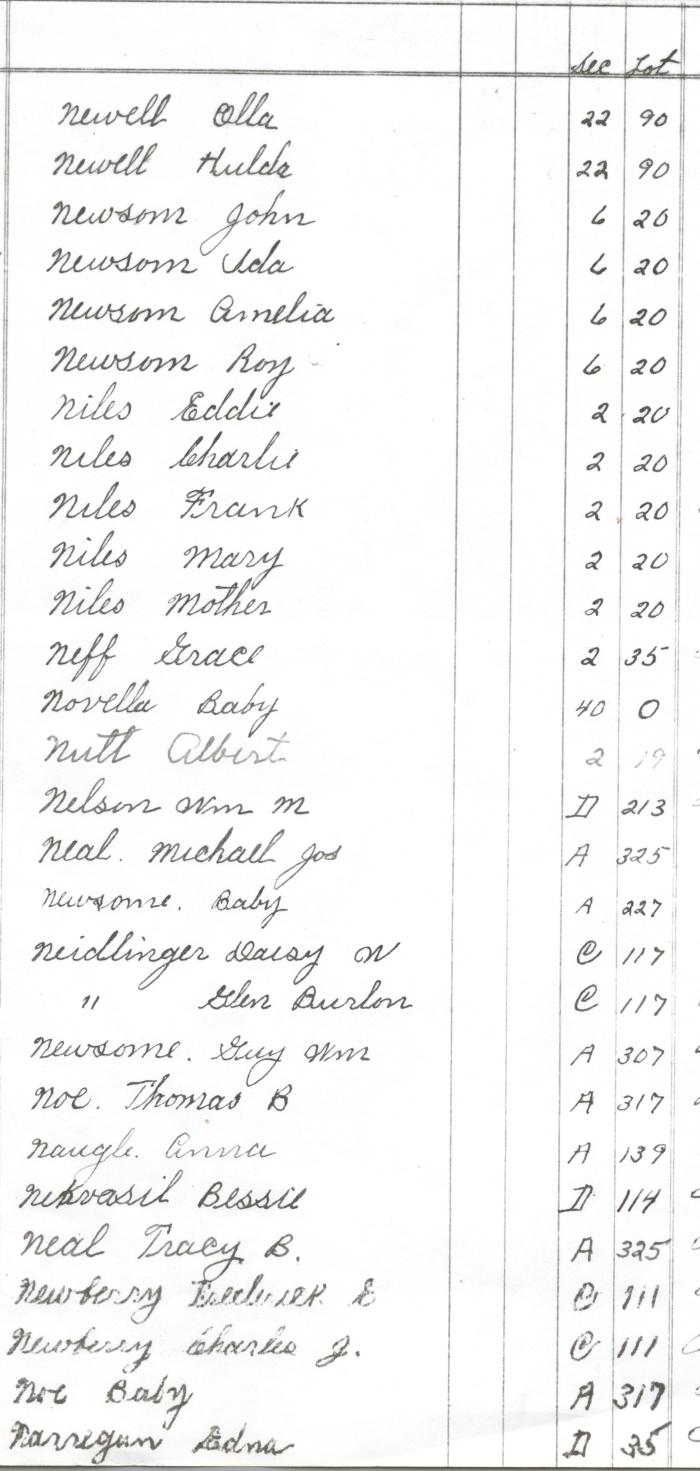 Sec Lot
Newell Olla 22 90
Newell Hulda 22 90
Newsom John 6 20
Newsom Ida 6 20
Newsom Amelia 6 20
Newsom Roy 6 20
Niles Eddie 2 20
Niles Charlie 2 20
Niles Frank 2 20
Niles Mary 2 20
Niles Mother 2 20
Neff Grace 2 35
Novella Baby 40 0
Nutt Albert 2 19
Nelson Wm M D 213
Neal. Michael Jos A 325
Newsome. Baby A 227
Neidlinger Daisy W C 117
" Glen Burlon C 117
Newsome. Guy Wm A 307
Noe. Thomas B A 317
Naugle. Anna A 139
Nekvasil Bessie D 114
Neal Tracy B. A 325
Newberry Frederick E C 111
Newberry Charles J. C 111
Noe Baby A 317
Narregan Edna D 35